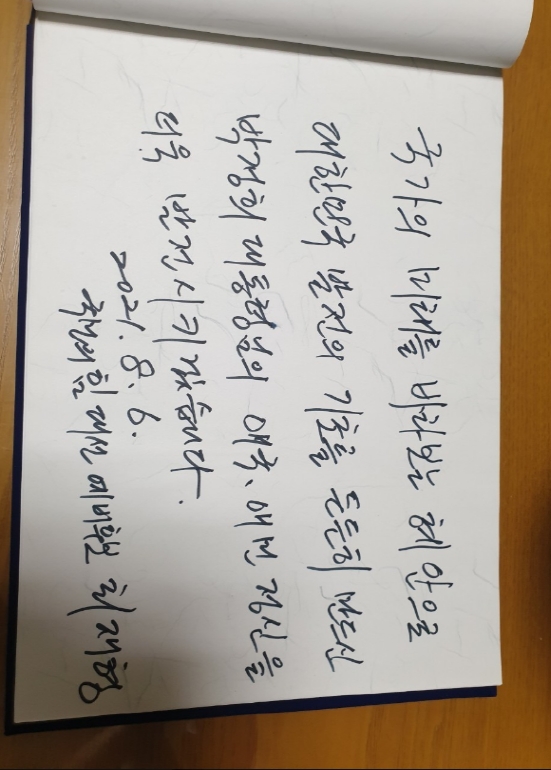 국가의 미래를 바라보는 혜안으로
대한민국 발전의 기초를 튼튼히 만드신
박정희 대통령님의 애국, 애민 정신을
더욱 발전시키겠습니다.
2021. 8. 6.
국민의힘 대선 예비후보 최재형